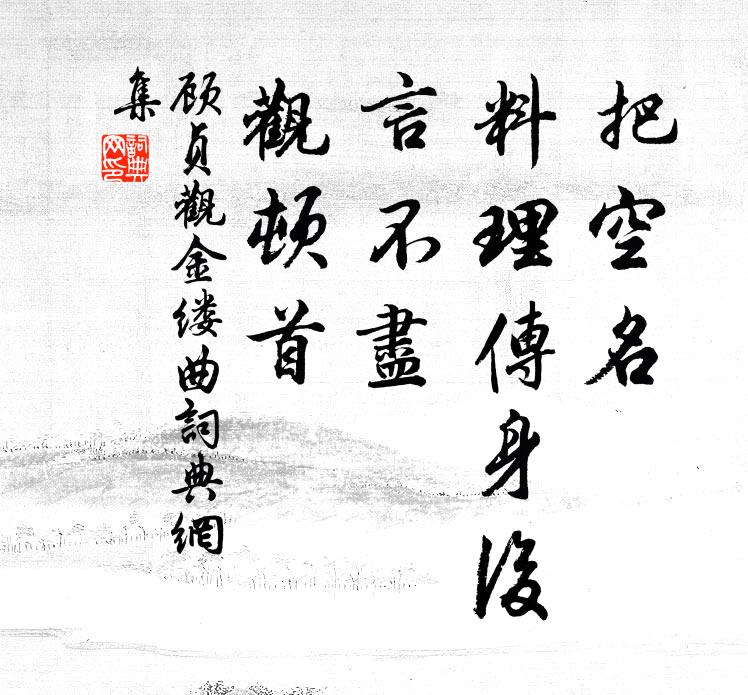 把空名
料理傳身後
言不盡
觀頓首
顾贞觀金缕曲詞典網
集
詞典網印